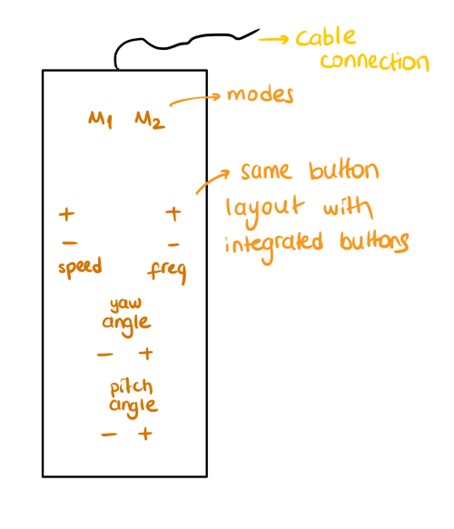 cable
connection
modes
M1 M2
same button
layout with
integrated buttons
+ +
− −
speed freq
yaw
angle
− +
pitch
angle
− +